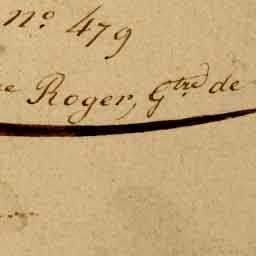 n.º 479
ce Roger, G.tre de